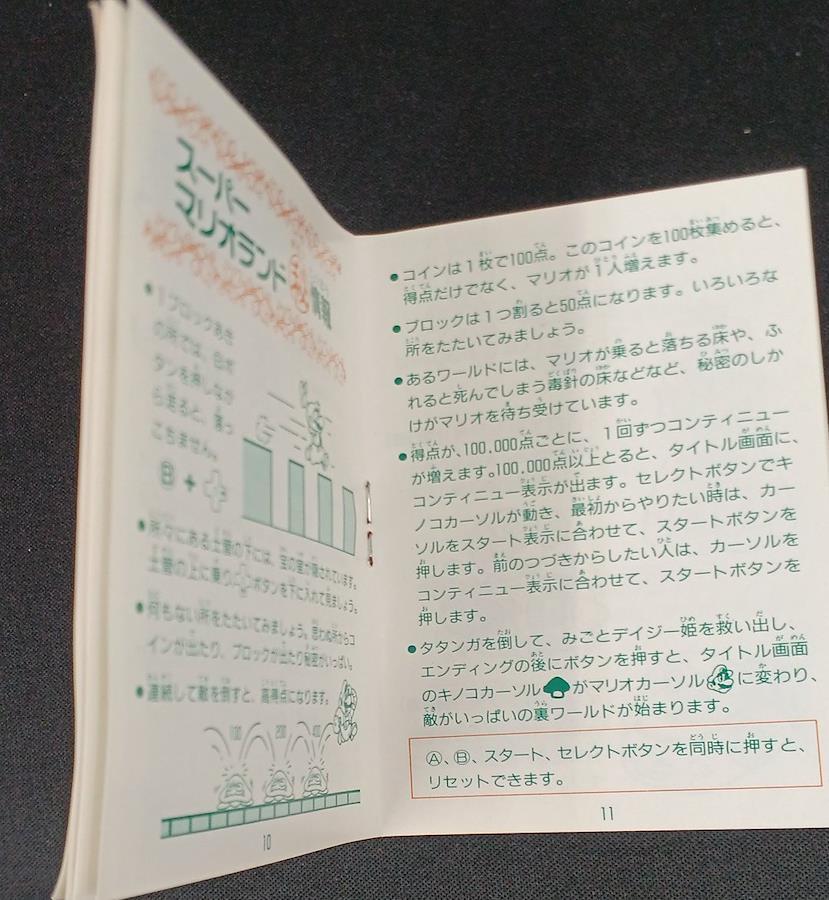 スーパー
マリオランド㊙情報
●1ブロックあき
の所では、Ⓑボ
タンを押しなが
ら走ると、落っ
こちません。
Ⓑ+
●所々にある土管の下には、宝の室が隠されています。
土管の上に乗り ボタンを下に入れて見ましょう。
●何もない所をたたいてみましょう。思わぬ所からコ
インが出たり、ブロックが出たり秘密がいっぱい。
●連続して敵を倒すと、高得点になります。
100 200 400
10
●コインは1枚で100点。このコインを100枚集めると、
得点だけでなく、マリオが1人増えます。
●ブロックは1つ割ると50点になります。いろいろな
所をたたいてみましょう。
●あるワールドには、マリオが乗ると落ちる床や、ふ
れると死んでしまう毒針の床などなど、秘密のしか
けがマリオを待ち受けています。
●得点が、100,000点ごとに、1回ずつコンティニュー
が増えます。100,000点以上とると、タイトル画面に、
コンティニュー表示が出ます。セレクトボタンでキ
ノコカーソルが動き、最初からやりたい時は、カー
ソルをスタート表示に合わせて、スタートボタンを
押します。前のつづきからしたい人は、カーソルを
コンティニュー表示に合わせて、スタートボタンを
押します。
●タタンガを倒して、みごとデイジー姫を救い出し、
エンディングの後にボタンを押すと、タイトル画面
のキノコカーソル がマリオカーソル に変わり、
敵がいっぱいの裏ワールドが始まります。
Ⓐ、Ⓑ、スタート、セレクトボタンを同時に押すと、
リセットできます。
11